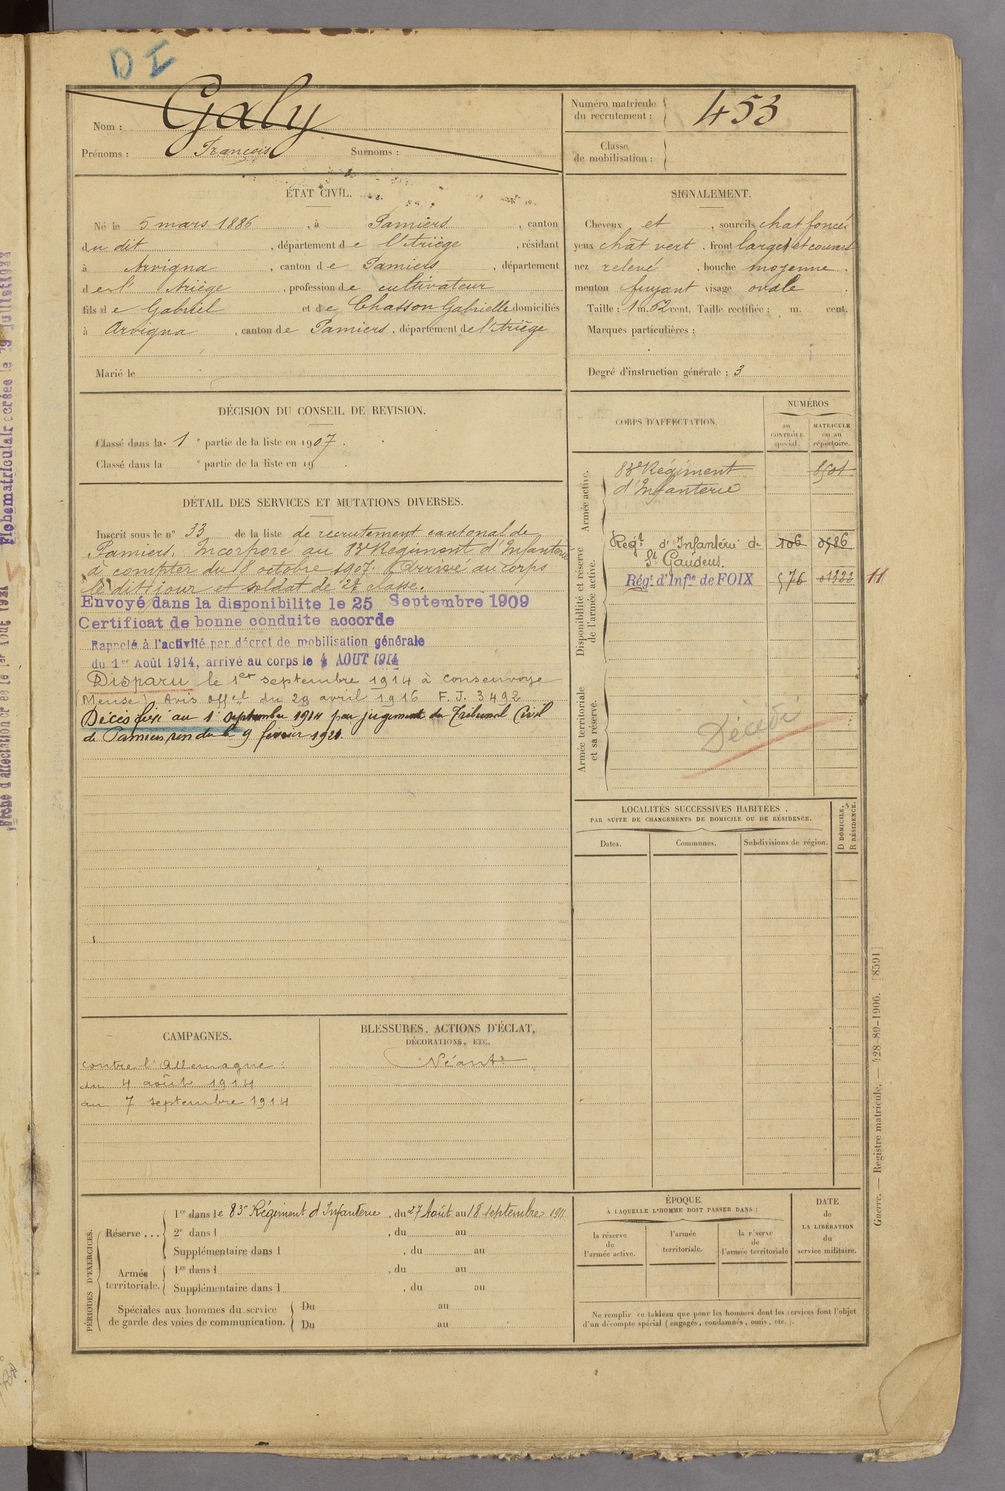 DI
Nom : Galy
Prénoms : François Surnoms :
Numéro matricule du recrutement : 453
Classe de mobilisation :
ÉTAT CIVIL.
Né le 5 mars 1886, à Pamiers, canton
du dit, département de l'Ariège, résidant
à Arvigna, canton de Pamiers, département
de l'Ariège, profession de cultivateur
fils de Gabriel et de Chasson Gabrielle domiciliés
à Arvigna, canton de Pamiers, département de l'Ariège
Marié le
SIGNALEMENT.
Cheveux et, sourcils chat foncé
yeux chât vert, front large et couvert
nez relevé, bouche moyenne.
menton fuyant visage ovale
Taille : 1 m. 62 cent. Taille rectifiée : m. cent.
Marques particulières :
Degré d'instruction générale : 3
DÉCISION DU CONSEIL DE REVISION.
Classé dans la 1e partie de la liste en 1907.
Classé dans la e partie de la liste en 19 .
DÉTAIL DES SERVICES ET MUTATIONS DIVERSES.
Inscrit sous le n° 33 de la liste de recrutement cantonal de
Pamiers. Incorporé au 83e Régiment d'Infanterie
à compter du 8 octobre 1907. Arrivé au corps
le dit jour et soldat de 2e classe.
Envoyé dans la disponibilite le 25 Septembre 1909
Certificat de bonne conduite accorde
Rappelé à l'activité par décret de mobilisation générale
du 1er Août 1914, arrivé au corps le 4 AOUT 1914
Disparu le 1er septembre 1914 à Consenvoye
(Meuse) Avis Offel du 29 avril 1916 F. J. 3492
Décès fixé au 1er septembre 1914 par jugement du Tribunal Civil
de Pamiers rendu le 9 février 1921.
CORPS D'AFFECTATION.
NUMÉROS
au CONTRÔLE spécial.
MATRICULE ou au répertoire.
Armée active.
83e Régiment d'Infanterie
8501
Disponibilité et réserve de l'armée active.
Régt d'Infanterie de St Gaudens. 106 0586
Régt d'Infie de FOIX 576 01822 11
Armée territoriale et sa réserve.
Décédé
LOCALITÉS SUCCESSIVES HABITÉES.
PAR SUITE DE CHANGEMENTS DE DOMICILE OU DE RÉSIDENCE.
Dates. Communes. Subdivisions de région.
D DOMICILE, R RÉSIDENCE.
CAMPAGNES.
Contre l'Allemagne :
du 4 août 1914
au 7 septembre 1914
BLESSURES, ACTIONS D'ÉCLAT,
DÉCORATIONS, ETC.
Néant
PÉRIODES D'EXERCICES.
Réserve ...
1re dans le 83e Régiment d'Infanterie, du 27 Août au 18 septembre 1911
2e dans l , du au
Supplémentaire dans l , du au
Armée territoriale.
1re dans l , du au
Supplémentaire dans l , du au
Spéciales aux hommes du service de garde des voies de communication.
Du au
Du au
ÉPOQUE
À LAQUELLE L'HOMME DOIT PASSER DANS :
la réserve de l'armée active.
l'armée territoriale.
la réserve de l'armée territoriale
DATE DE LA LIBÉRATION du service militaire.
Ne remplir ce tableau que pour les hommes dont les services font l'objet
d'un décompte spécial (engagés, condamnés, omis, etc.).
Guerre. — Registre matricule. — 428-89-1906. [8591]